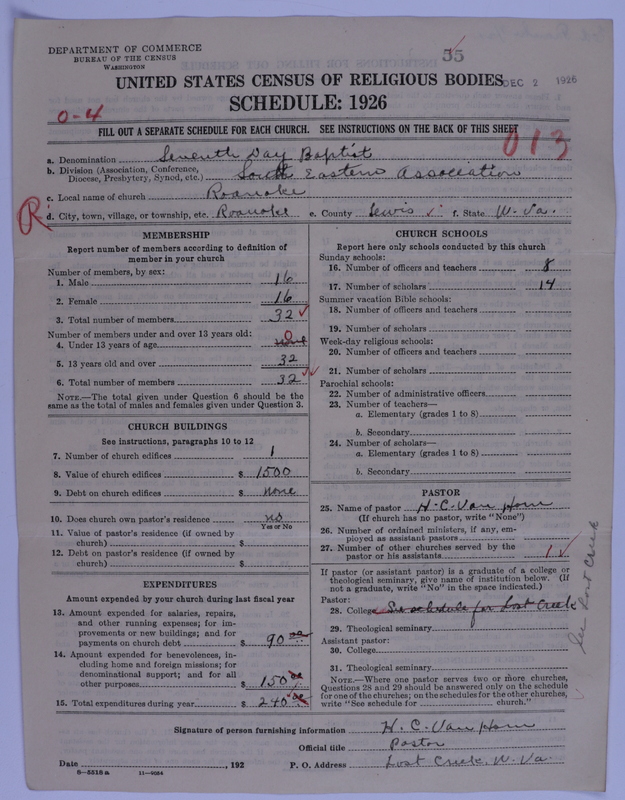 DEPARTMENT OF COMMERCE
BUREAU OF THE CENSUS
WASHINGTON
55
UNITED STATES CENSUS OF RELIGIOUS BODIES
DEC 2 1926
SCHEDULE: 1926
0-4
FILL OUT A SEPARATE SCHEDULE FOR EACH CHURCH. SEE INSTRUCTIONS ON THE BACK OF THIS SHEET
013
a. Denomination Seventh Day Baptist
b. Division (Association, Conference, Diocese, Presbytery, Synod, etc.) South Eastern Association
c. Local name of church Roanoke
R
d. City, town, village, or township, etc. Roanoke e. County Lewis f. State W. Va.
MEMBERSHIP
Report number of members according to definition of
member in your church
Number of members, by sex:
1. Male 16
2. Female 16
3. Total number of members 32
Number of members under and over 13 years old:
4. Under 13 years of age none 0
5. 13 years old and over 32
6. Total number of members 32
NOTE.—The total given under Question 6 should be the
same as the total of males and females given under Question 3.
CHURCH BUILDINGS
See instructions, paragraphs 10 to 12
7. Number of church edifices 1
8. Value of church edifices $ 1500
9. Debt on church edifices $ none
10. Does church own pastor's residence? no
Yes or No
11. Value of pastor's residence (if owned by
church) $
12. Debt on pastor's residence (if owned by
church) $
EXPENDITURES
Amount expended by your church during last fiscal year
13. Amount expended for salaries, repairs,
and other running expenses; for im-
provements or new buildings; and for
payments on church debt $ 90 00
14. Amount expended for benevolences, in-
cluding home and foreign missions; for
denominational support; and for all
other purposes $ 150 00
15. Total expenditures during year $ 240 00
CHURCH SCHOOLS
Report here only schools conducted by this church
Sunday schools:
16. Number of officers and teachers 8
17. Number of scholars 14
Summer vacation Bible schools:
18. Number of officers and teachers
19. Number of scholars
Week-day religious schools:
20. Number of officers and teachers
21. Number of scholars
Parochial schools:
22. Number of administrative officers
23. Number of teachers—
a. Elementary (grades 1 to 8)
b. Secondary
24. Number of scholars—
a. Elementary (grades 1 to 8)
b. Secondary
PASTOR
25. Name of pastor H. C. Van Horn
(If church has no pastor, write "None")
26. Number of ordained ministers, if any, em-
ployed as assistant pastors
27. Number of other churches served by the
pastor or his assistants 1
If pastor (or assistant pastor) is a graduate of a college or
theological seminary, give name of institution below. (If
not a graduate, write "No" in the space indicated.)
Pastor:
28. College See schedule for Lost Creek
29. Theological seminary
Assistant pastor:
30. College
31. Theological seminary
NOTE.—Where one pastor serves two or more churches,
Questions 28 and 29 should be answered only on the schedule
for one of the churches; on the schedules for the other churches,
write "See schedule for church."
See Lost Creek
Signature of person furnishing information H. C. Van Horn
Official title Pastor
Date , 192 P. O. Address Lost Creek, W. Va.
8—5518a 11—9054